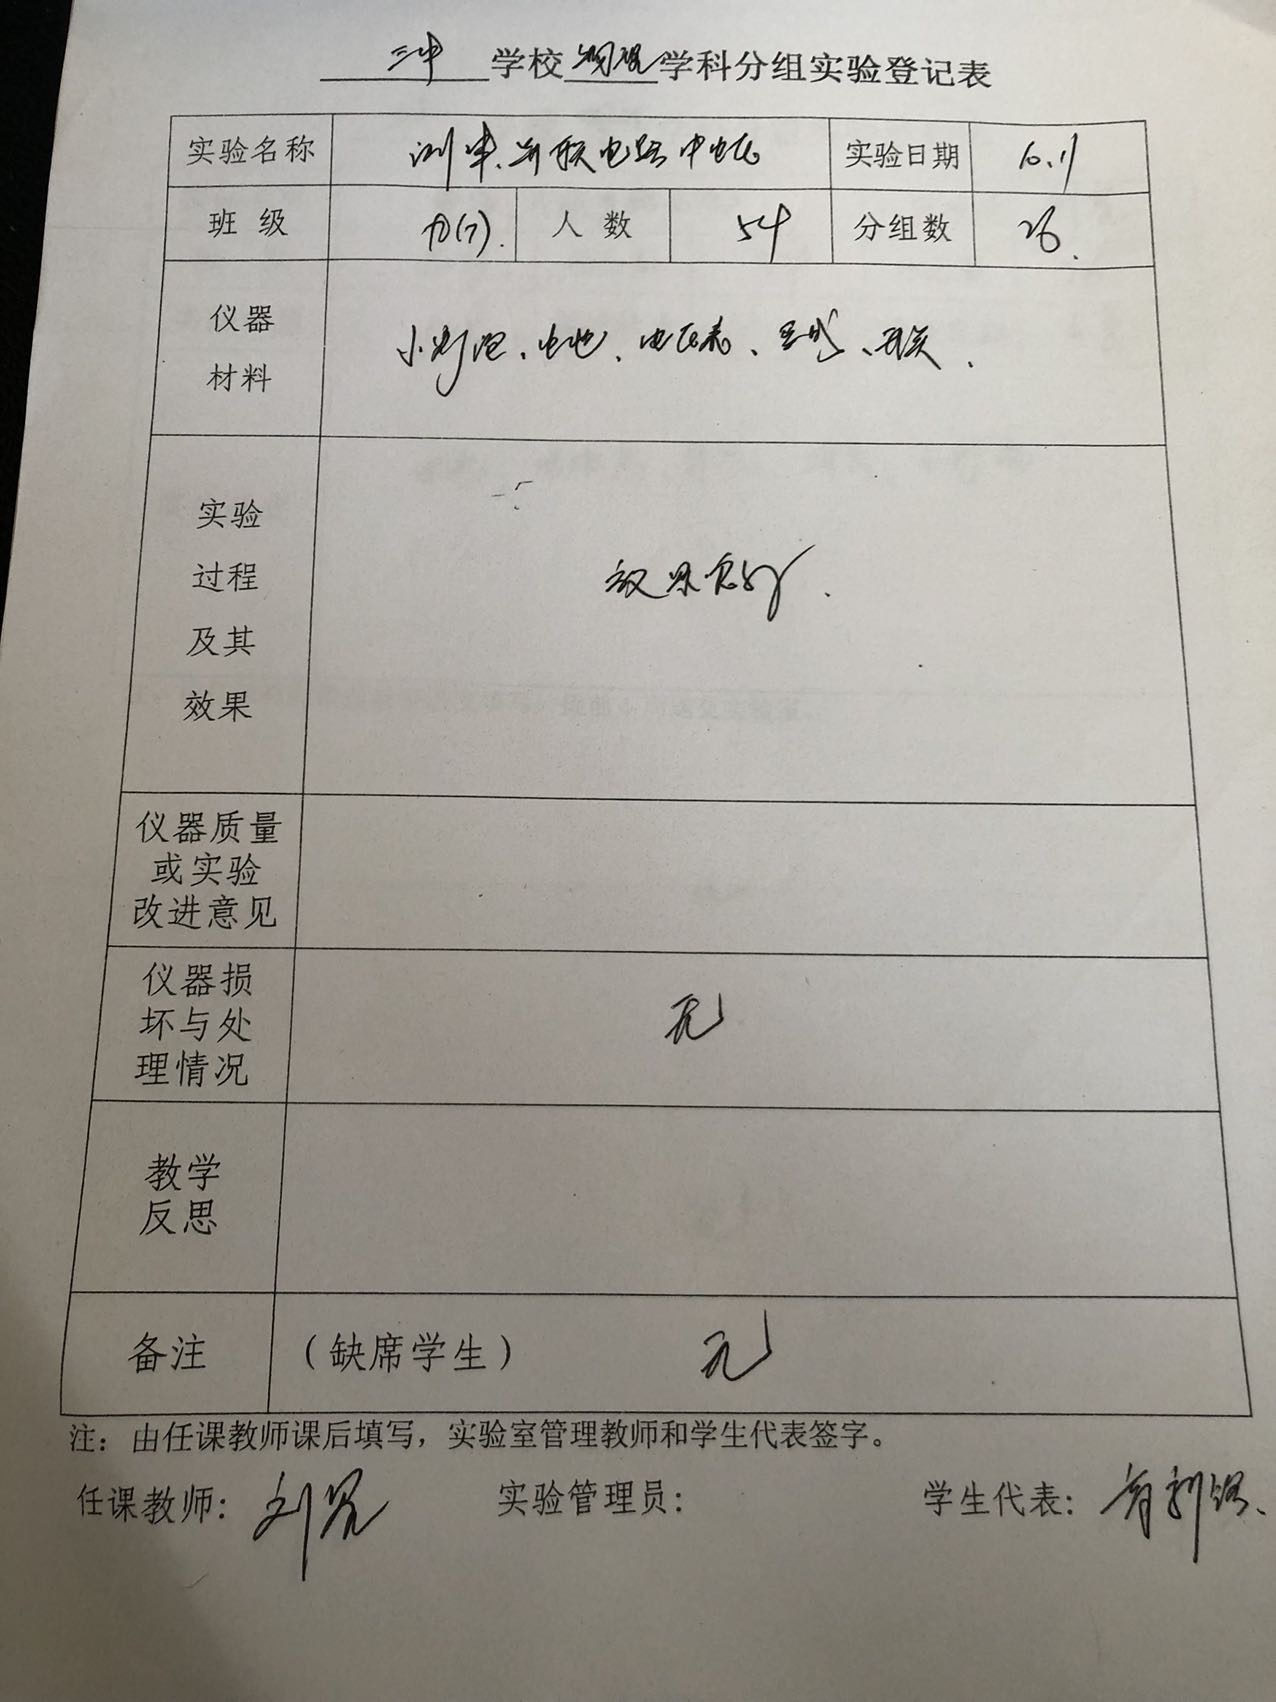 三中 学校 物理 学科分组实验登记表
实验名称 测串、并联电路中电压 实验日期 10.11
班 级 九(7). 人 数 54 分组数 26.
仪器
材料
小灯泡、电池、电压表、导线、开关.
实验
过程
及其
效果
效果良好.
仪器质量
或实验
改进意见
仪器损
坏与处
理情况
无
教学
反思
备注 (缺席学生) 无
注：由任课教师课后填写，实验室管理教师和学生代表签字。
任课教师: 实验管理员: 学生代表: